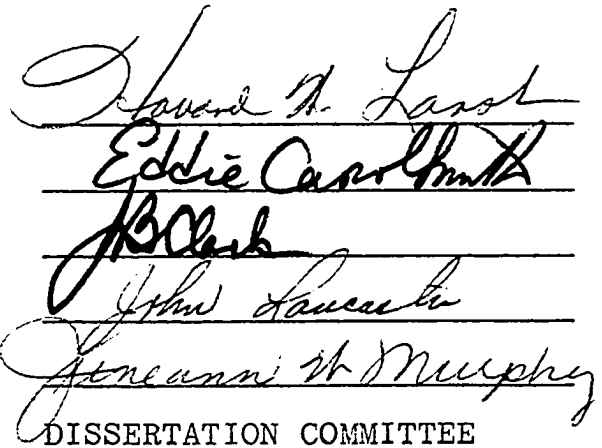 Howard W. Larsh
Eddie Carol Smith
JB Clark
John Lancaster
Juneann W Murphy
DISSERTATION COMMITTEE